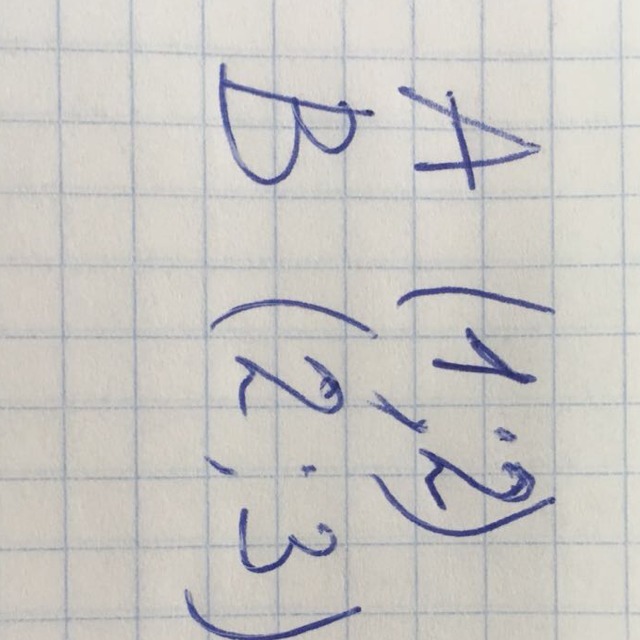 A (1;2)
B (2;3)